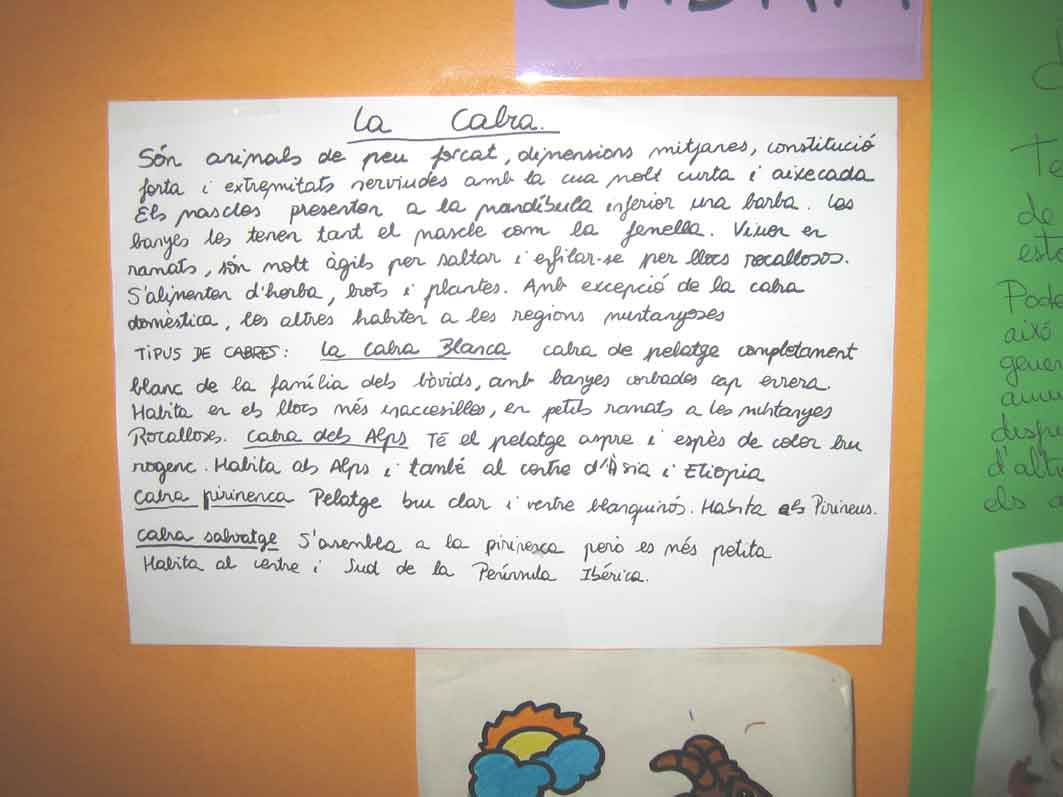 La Cabra.
Són animals de peu forcat, dimensions mitjanes, constitució
forta i extremitats nerviudes amb la cua molt curta i aixecada
Els mascles presenten a la mandíbula inferior una barba. Las
banyes les tenen tant el mascle com la femella. Viuen en
ramats, són molt àgils per saltar i enfilar-se per llocs rocallosos.
S'alimenten d'herba, brots i plantes. Amb excepció de la cabra
domèstica, les altres habiten a les regions muntanyoses
TIPUS DE CABRES: La Cabra Blanca cabra de pelatge completament
blanc de la família dels bòvids, amb banyes corbades cap errera.
Habita en els llocs més inaccesibles, en petits ramats a les muntanyes
Rocalloses. Cabra dels Alps Té el pelatge aspre i espès de color bru
rogenc. Habita als Alps i també al centre d'Àsia i Etiopia
Cabra pirinenca Pelatge bru clar i ventre blanquinós. Habita als Pirineus.
Cabra salvatge S'asembla a la pirinenca però es més petita
Habita al centre i Sud de la Península Ibérica.
Te
de
esto
Pode
aixó
gener
despr
d'alt
els